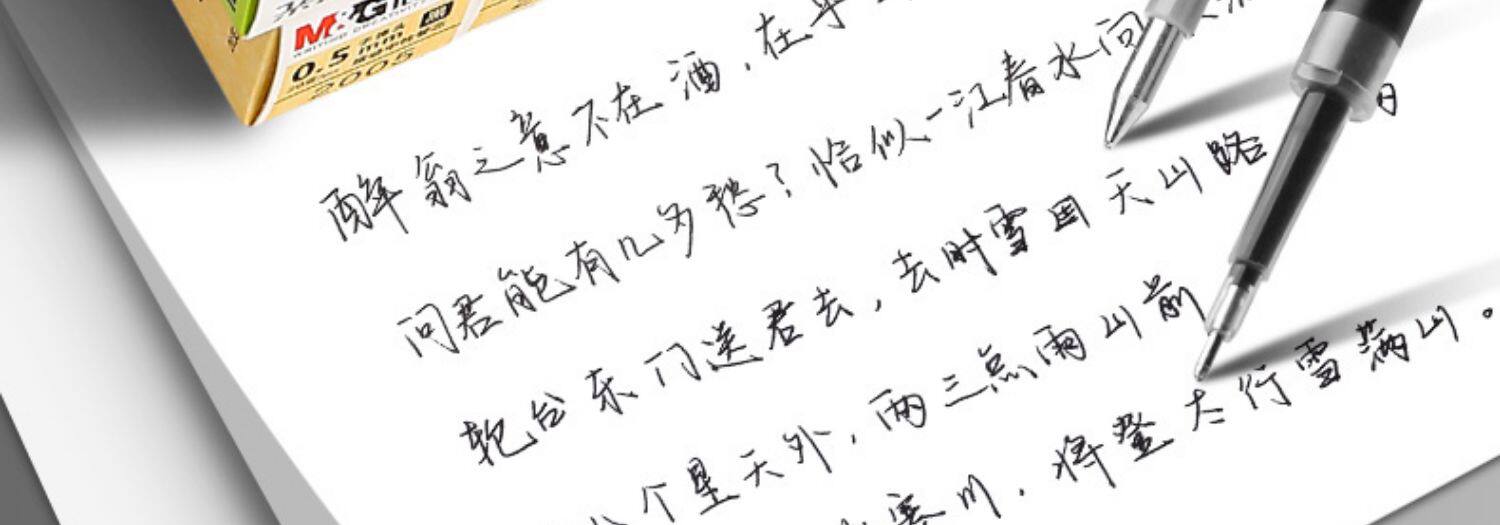 M&G
0.5mm
2005
醉翁之意不在酒，在乎
问君能有几多愁？恰似一江春水向
轮台东门送君去，去时雪因天山路
个星天外，两三点雨山前
塞川，将登太行雪满山。